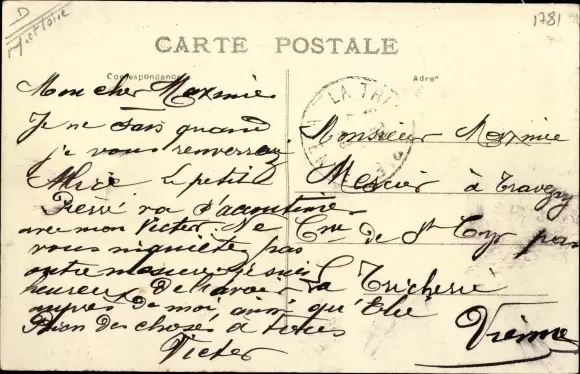 D
1781
CARTE POSTALE
Correspondance
Adre
LA TRI
Mon cher Maximie
Je ne sais quand
je vous renverrai
le petit
Pierre va s'acoutume
avec mon Victer. Ne
vous inquiète pas
outre mesure je suis
heureux De l'avoir
auprès de moi, ainsi qu'Elie
Bien des choses à tous
Victer
Monsieur Maximie
Mercier à
Cne de St Cyr par
La Tricherie
Vienne